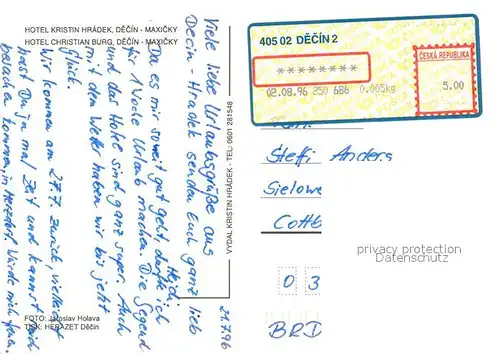 HOTEL KRISTIN HRÁDEK, DĚČÍN - MAXIČKY
HOTEL CHRISTIAN BURG, DĚČÍN - MAXIČKY
21.7.96
Viele liebe Urlaubsgrüße aus
Děčín-Hradek senden Euch ganz lieb
Heidi
Da es mir soweit gut geht, durfte ich
für 1 Woche Urlaub machen. Die Gegend
und das Hotel sind ganz super. Auch
mit dem Wetter haben wir bis jetzt
Glück.
Wir kommen am 27.7. zurück, vielleicht
hast Du ja mal Zeit und kannst mich
besuchen kommen, in Herzdorf. Würde mich freuen.
FOTO: Jaroslav Holava
TISK: HERAZET Děčín
VYDAL KRISTIN HRÁDEK - TEL: 0601 281548
405 02 DĚČÍN 2
********
02.08.96 250 686 0.005kg
ČESKÁ REPUBLIKA
5.00
Steffi Anders
Sielowe
Cottb
privacy protection
Datenschutz
0 3
BRD